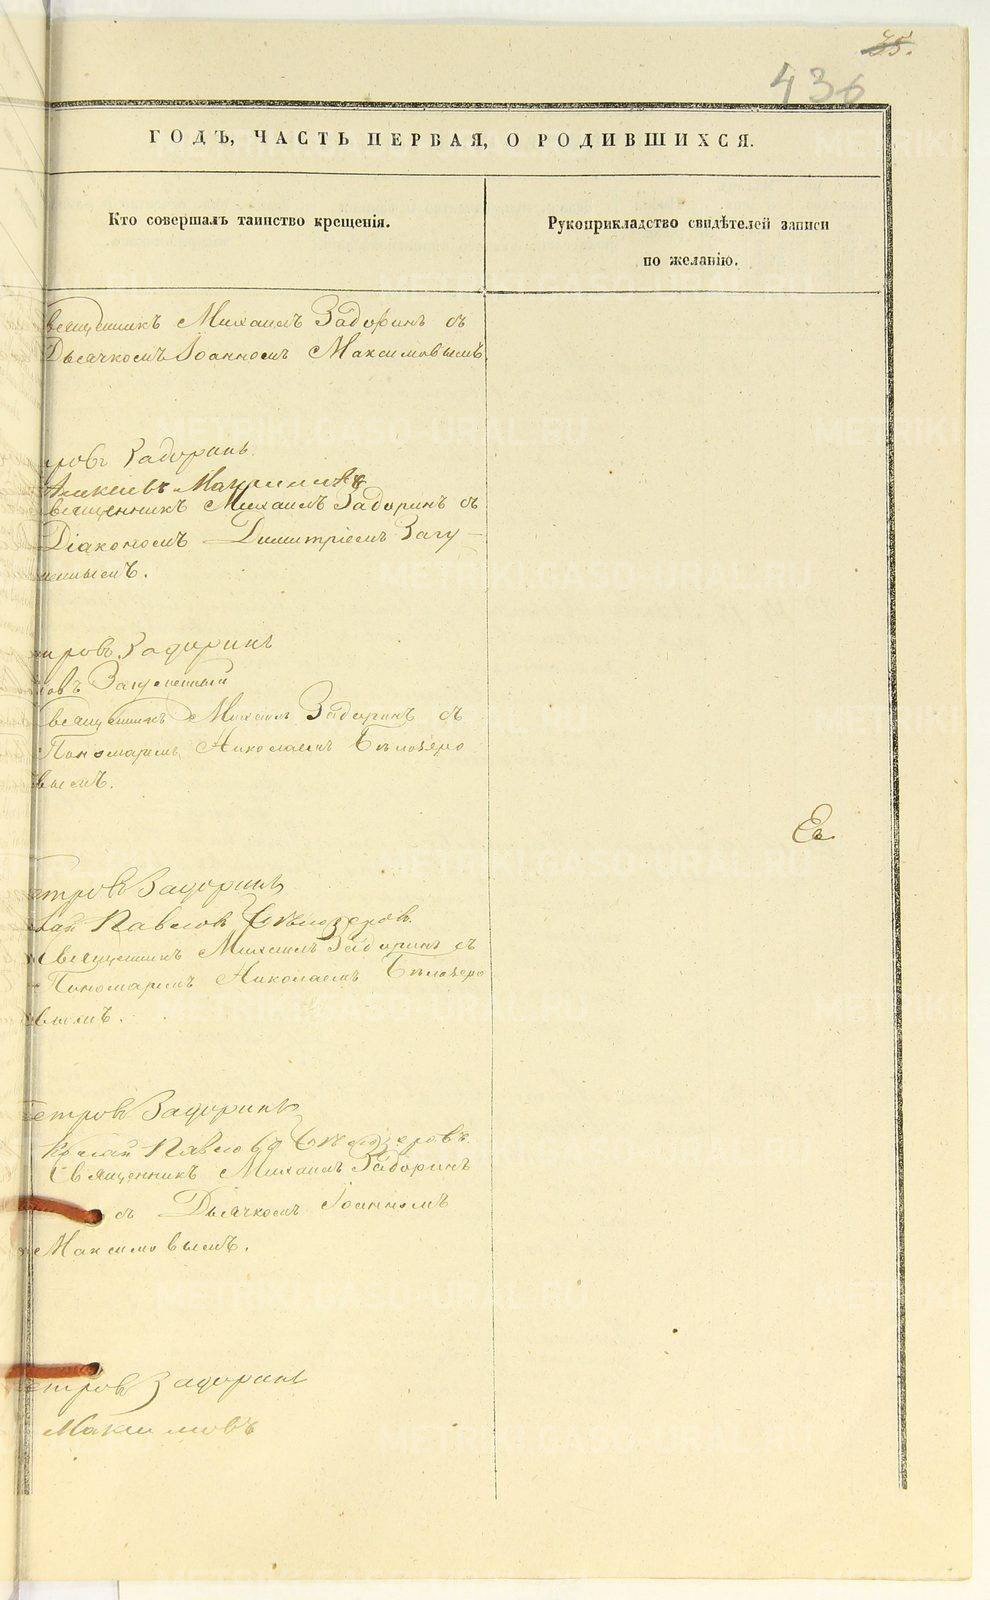 35.
436
ГОДЪ, ЧАСТЬ ПЕРВАЯ, О РОДИВШИХСЯ.
Кто совершалъ таинство крещенія.
Рукоприкладство свидѣтелей записи
по желанію.
вященникъ Михаилъ Задоринъ съ
Дьячкомъ Іоанномъ Максимовымъ
тровъ Задоринъ
Максимовъ
вященникъ Михаилъ Задоринъ съ
Діакономъ Димитріемъ Загу-
меннымъ.
тровъ Задоринъ
овъ Загуменный
Священникъ Михаилъ Задоринъ съ
Пономаремъ Николаемъ Бѣлозеро
вымъ.
Ев
етровъ Задоринъ
лай Павловъ Бѣлозеровъ
Священникъ Михаилъ Задоринъ съ
Пономаремъ Николаемъ Бѣлозеро
вымъ.
етровъ Задоринъ
колай Павловъ Бѣлозеровъ
Священникъ Михаилъ Задоринъ
съ Дьячкомъ Іоанномъ
Максимовымъ.
етровъ Задоринъ
Максимовъ
METRIKI.GASO-URAL.RU